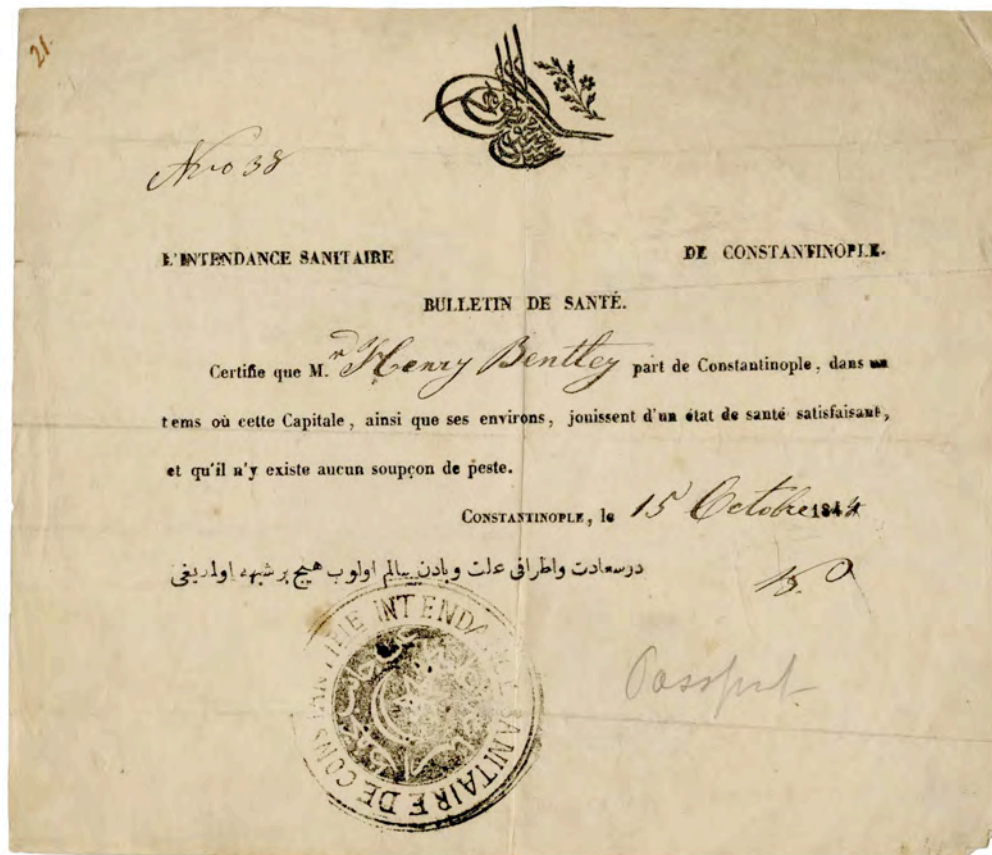 21.
Nro 38
L'INTENDANCE SANITAIRE DE CONSTANTINOPLE.
BULLETIN DE SANTÉ.
Certifie que M.r Henry Bentley part de Constantinople, dans un
tems où cette Capitale, ainsi que ses environs, jouissent d'un état de santé satisfaisant,
et qu'il n'y existe aucun soupçon de peste.
CONSTANTINOPLE, le 15 Octobre 184
درسعادت واطرافی علت وبادن سالم اولوب هیچ بر شبهه اولمدیغی
INTENDANCE SANITAIRE DE CONSTANTINOPLE
Passport